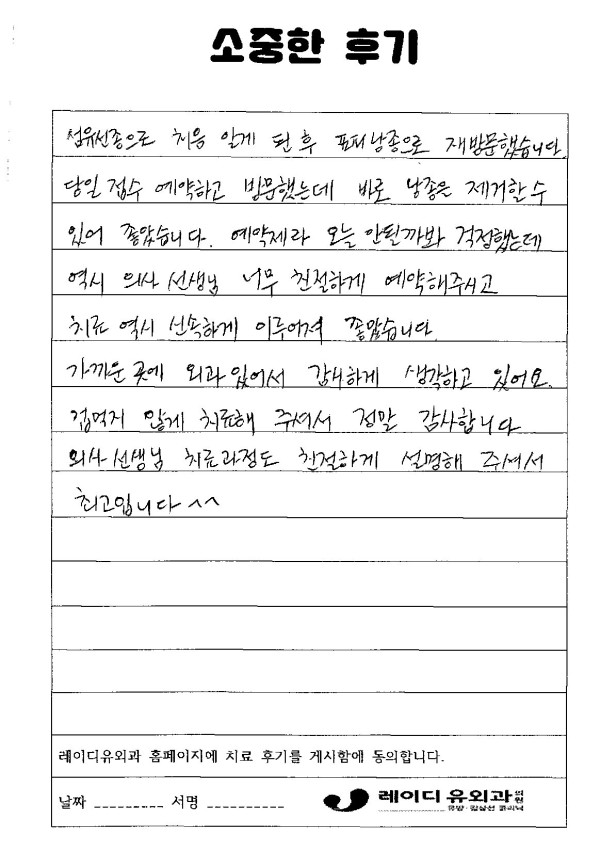 소중한 후기
섬유선종으로 처음 알게 된 후 표피낭종으로 재방문했습니다.
당일 접수 예약하고 방문했는데 바로 낭종은 제거할 수
있어 좋았습니다. 예약제라 오늘 안될까봐 걱정했는데
역시 의사 선생님 너무 친절하게 예약해주시고
치료 역시 신속하게 이루어져 좋았습니다.
가까운 곳에 외과 있어서 감사하게 생각하고 있어요.
겁먹지 않게 치료해 주셔서 정말 감사합니다
의사 선생님 치료과정도 친절하게 설명해 주셔서
최고입니다 ^^
레이디유외과 홈페이지에 치료 후기를 게시함에 동의합니다.
날짜 _________ 서명 ___________
레이디 유외과 의원
유방·갑상선 클리닉